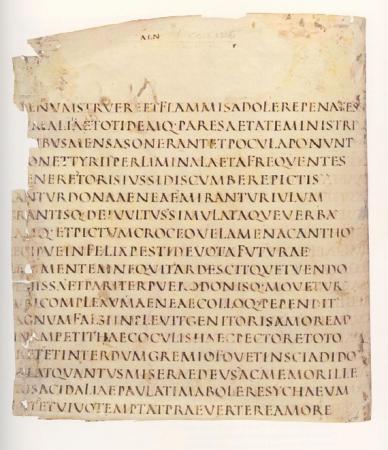 AEN
ENVMSTRVEREETFLAMMISADOLEREPENATES
MALIAETOTIDEMQ·PARESAETATEMINISTRI
IBVSMENSASONERANTETPOCVLAPONVNT
ONETTYRIIPERLIMINALAETAFREQVENTES
ENERETORISIVSSIDISCVMBEREPICTIS
ANTVRDONAAENEAEMIRANTVRIVLVM
RANTISQ·DEIVVLTVSSIMVLATAQVEVERBA
MQ·ETPICTVMCROCEOVELAMENACANTHO
CIPVEINFELIXPESTIDEVOTAFVTVRAE
RIMENTEMNEQVITARDESCITQVETVENDO
NISSAETPARITERPVERODONISQ·MOVETVR
VBICOMPLEXVAENEAECOLLOQ·PEPENDIT
AGNVMFALSIINPLEVITGENITORISAMOREM
INAMPETITHAECOCVLISHAECPECTORETOTO
RETETINTERDVMGREMIOFOVETINSCIADIDO
DATQVANTVSMISERAEDEVSACMEMORILLE
RISACIDALIAEPAVLATIMABOLERESYCHAEVM
ITETVIVOTEMPTATPRAEVERTEREAMORE